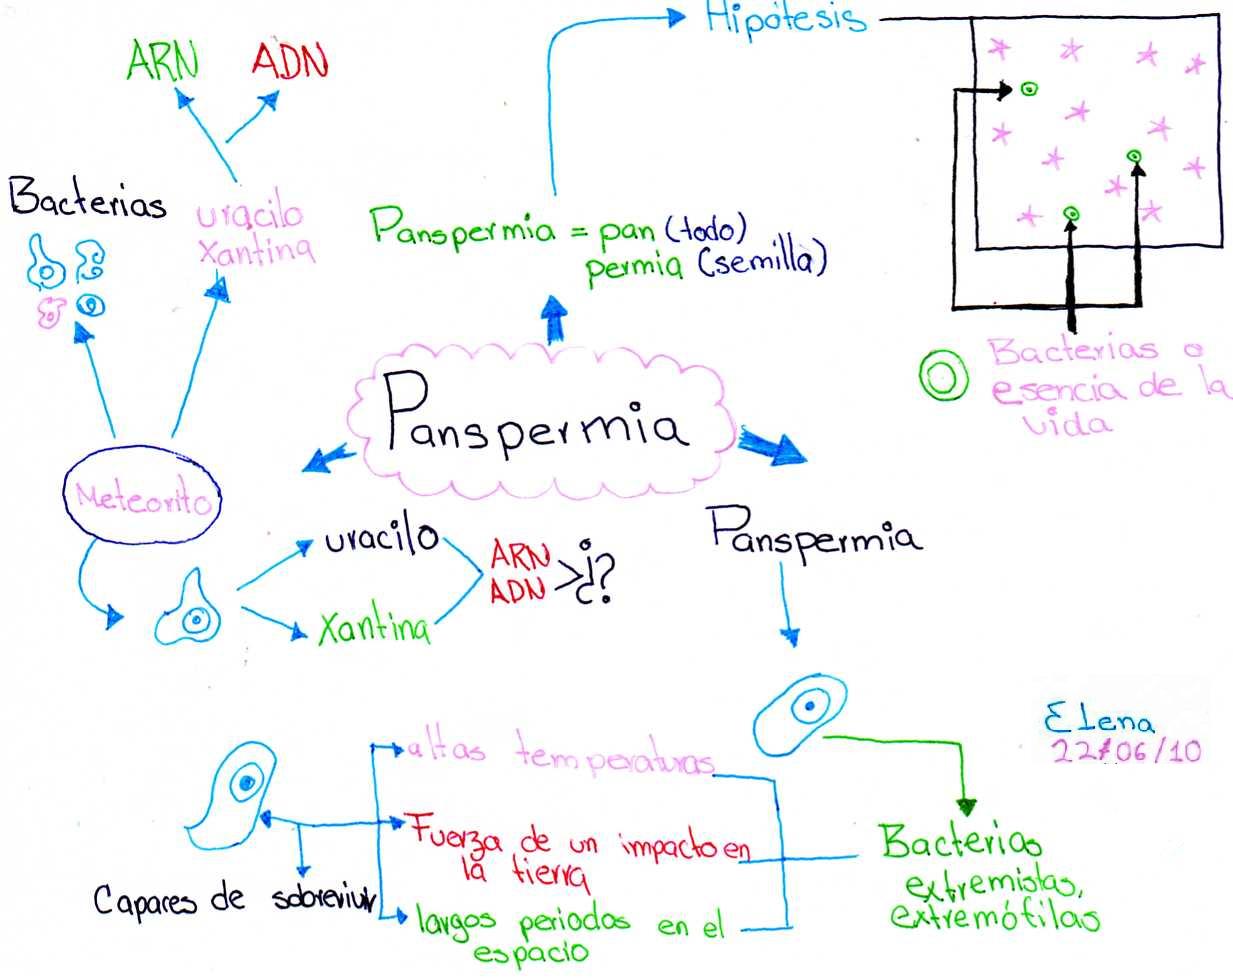 Hipótesis
ARN ADN
Bacterias
uracilo
Xantina
Panspermia = pan (todo)
permia (semilla)
Bacterias o
esencia de la
vida
Panspermia
Meteorito
uracilo
Xantina
ARN
ADN
¿?
Panspermia
Elena
22/06/10
altas temperaturas
Fuerza de un impacto en
la tierra
largos periodos en el
espacio
Capares de sobrevivir
Bacterias
extremistas,
extremófilas